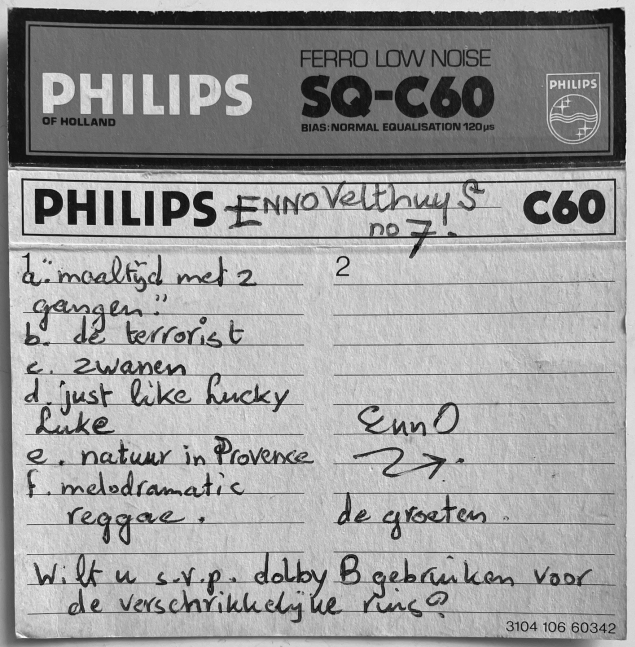 FERRO LOW NOISE
PHILIPS SQ-C60
OF HOLLAND
BIAS:NORMAL EQUALISATION 120µs
PHILIPS
PHILIPS ENNO Velthuys C60
no 7.
a. "maaltijd met 2
gangen."
b. de terrorist
c. zwanen
d. just like Lucky
Luke
e. natuur in Provence
f. melodramatic
reggae.
2
Enno
de groeten.
Wilt u s.v.p. dolby B gebruiken voor
de verschrikkelijke ruis?
3104 106 60342